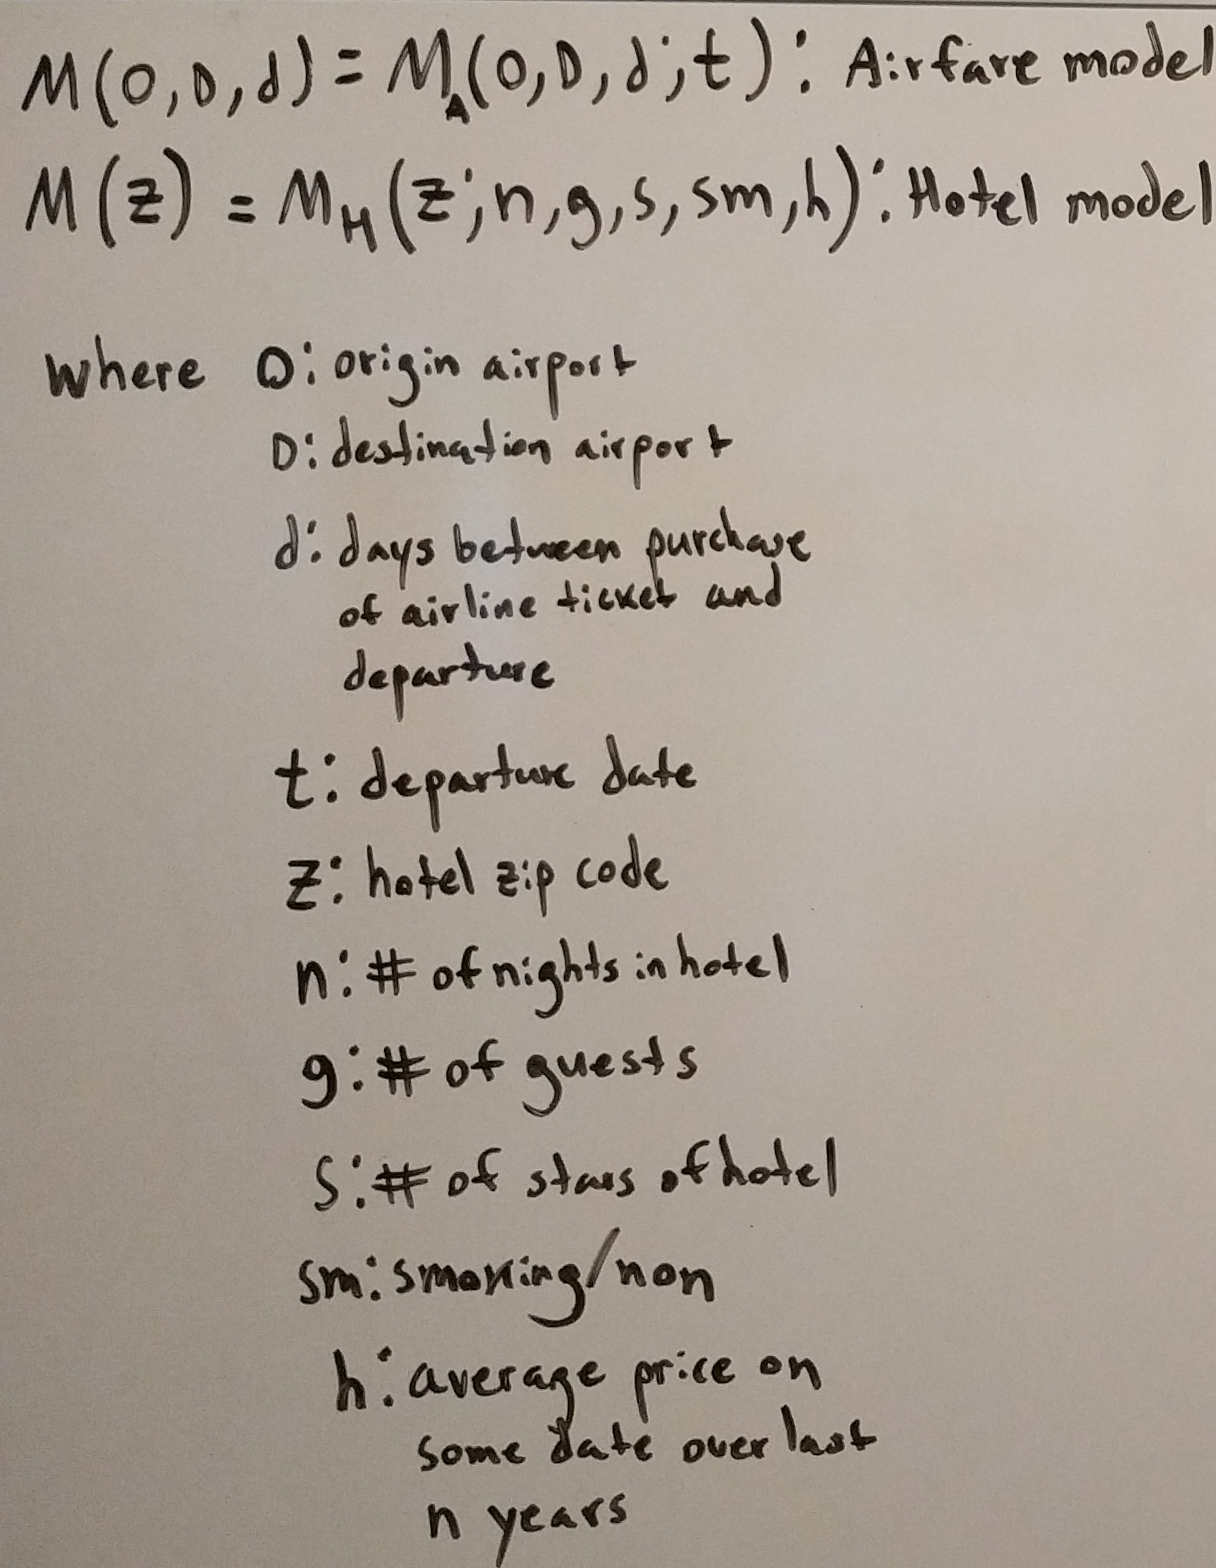 M(O,D,d) = M_A(O,D,d;t): Airfare model
M(z) = M_H(z;n,g,s,sm,h): Hotel model
where O: origin airport
D: destination airport
d: days between purchase
of airline ticket and
departure
t: departure date
z: hotel zip code
n: # of nights in hotel
g: # of guests
s: # of stars of hotel
sm: smoking/non
h: average price on
some date over last
n years